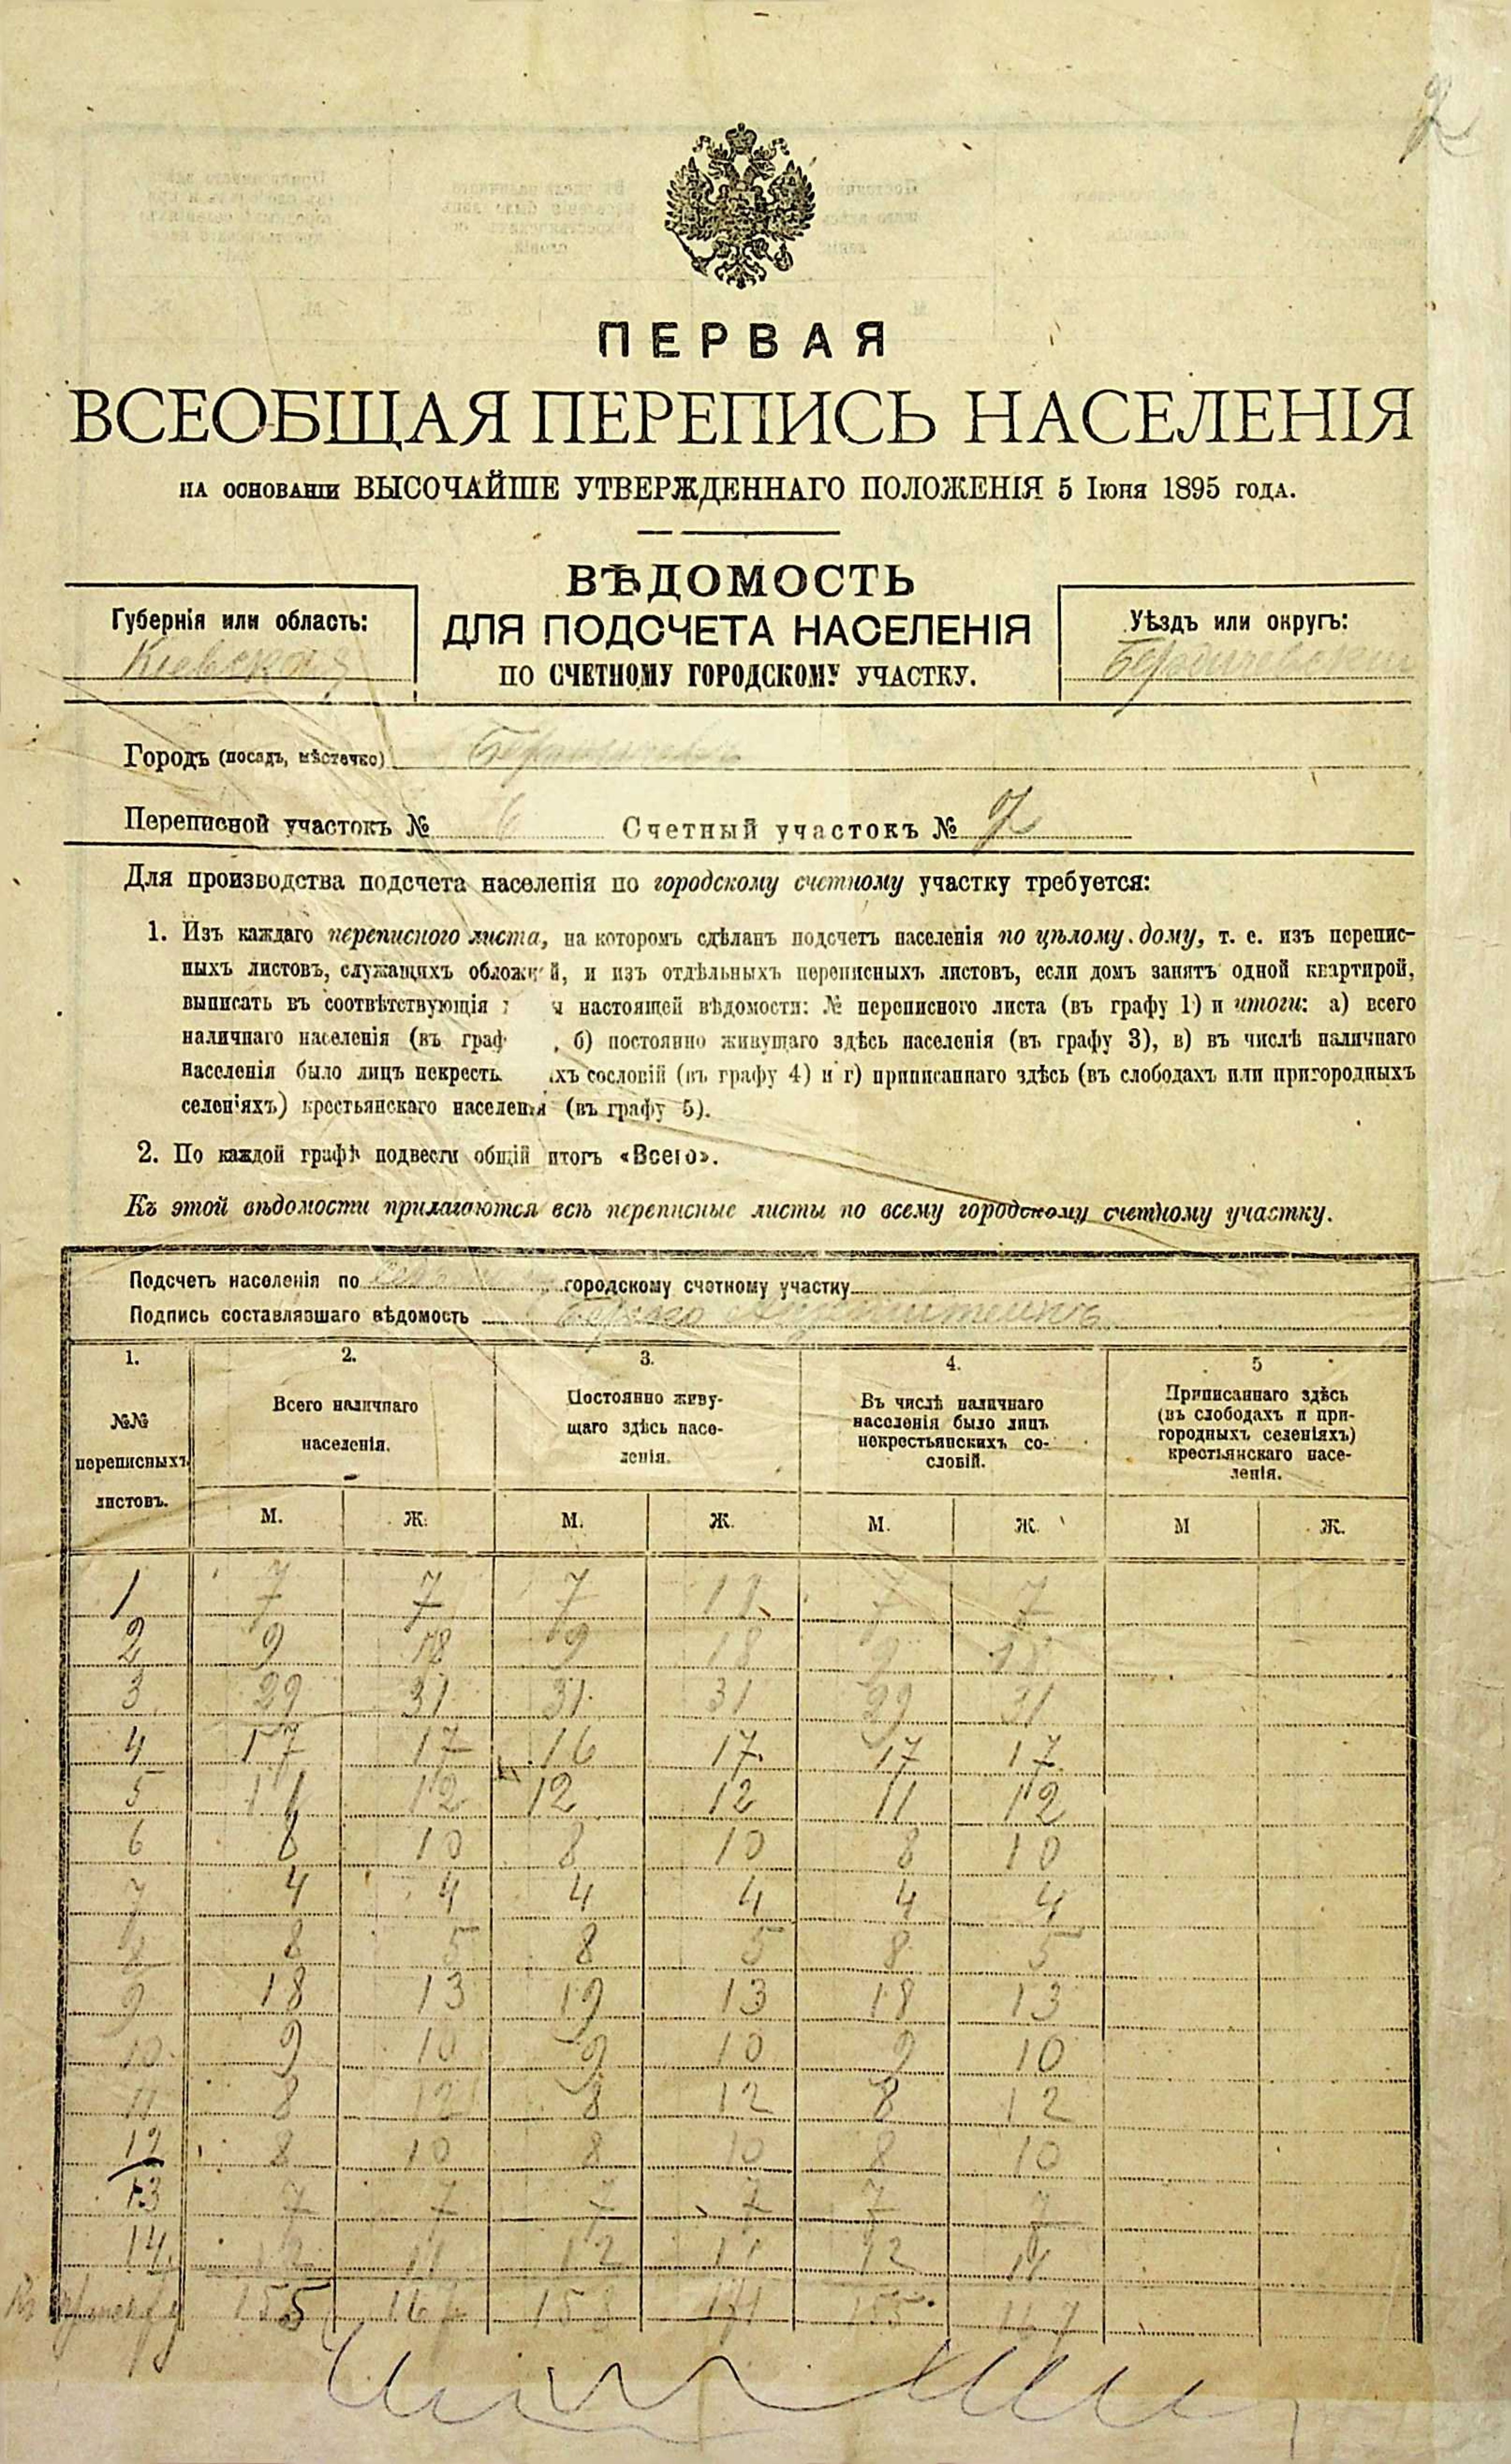 2
ПЕРВАЯ
ВСЕОБЩАЯ ПЕРЕПИСЬ НАСЕЛЕНІЯ
НА ОСНОВАНІИ ВЫСОЧАЙШЕ УТВЕРЖДЕННАГО ПОЛОЖЕНІЯ 5 Іюня 1895 ГОДА.
ВѢДОМОСТЬ
ДЛЯ ПОДСЧЕТА НАСЕЛЕНІЯ
ПО СЧЕТНОМУ ГОРОДСКОМУ УЧАСТКУ.
Губернія или область:
Кіевская
Уѣздъ или округъ:
Бердичевскій
Городъ (посадъ, мѣстечко) Бердичевъ
Переписной участокъ № 6 Счетный участокъ № 2
Для производства подсчета населенія по городскому счетному участку требуется:
1. Изъ каждаго переписного листа, на которомъ сдѣланъ подсчетъ населенія по цѣлому дому, т. е. изъ перепис-
ныхъ листовъ, служащихъ обложкой, и изъ отдѣльныхъ переписныхъ листовъ, если домъ занятъ одной квартирой,
выписать въ соотвѣтствующія настоящей вѣдомости: № переписного листа (въ графу 1) и итоги: а) всего
наличнаго населенія (въ граф , б) постоянно живущаго здѣсь населенія (въ графу 3), в) въ числѣ наличнаго
населенія было лицъ некресть хъ сословій (въ графу 4) и г) приписаннаго здѣсь (въ слободахъ или пригородныхъ
селеніяхъ) крестьянскаго населенія (въ графу 5).
2. По каждой графѣ подвести общій итогъ «Всего».
Къ этой вѣдомости прилагаются всѣ переписные листы по всему городскому счетному участку.
Подсчетъ населенія по городскому счетному участку
Подпись составлявшаго вѣдомость
1. 2. 3. 4. 5
№№ переписныхъ листовъ.
Всего наличнаго населенія.
Постоянно живу-щаго здѣсь насе-ленія.
Въ числѣ наличнаго населенія было лицъ некрестьянскихъ со-словій.
Приписаннаго здѣсь (въ слободахъ и при-городныхъ селеніяхъ) крестьянскаго насе-ленія.
М. Ж. М. Ж. М. Ж. М Ж.
1 7 7 7 11 7 7
2 9 18 9 18 9 18
3 29 31 31 31 29 31
4 17 17 16 17 17 17
5 11 12 12 12 11 12
6 8 10 8 10 8 10
7 4 4 4 4 4 4
8 8 5 8 5 8 5
9 18 13 19 13 18 13
10 9 10 9 10 9 10
11 8 12 8 12 8 12
12 8 10 8 10 8 10
13 7 7 7 7 7 7
14 12 11 12 11 12 11
155 167 158 171 155 167